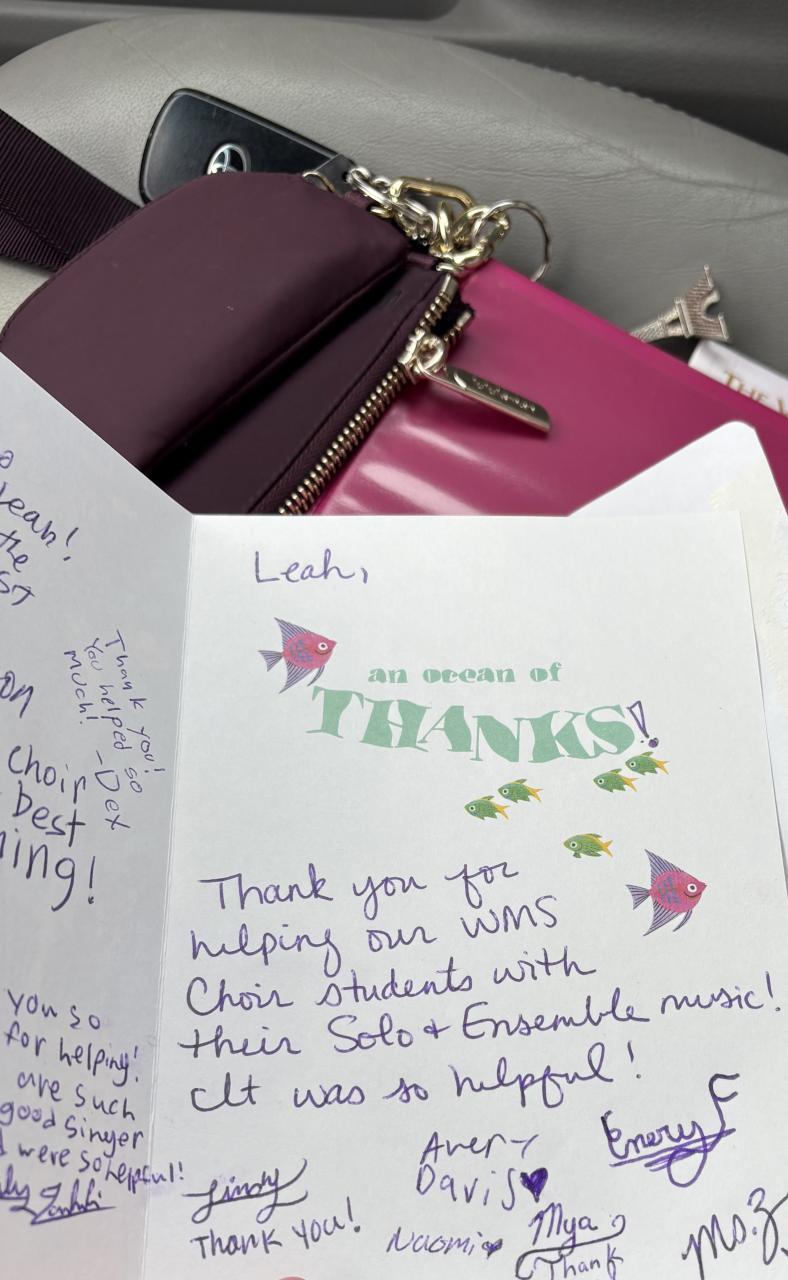 THE
Leah!
the
on
choir
best
Thank you!
You helped so
much!
-Dex
you so
for helping!
are such
good singer
were so helpful!
Leah,
an ocean of
THANKS!
Thank you for
helping our WMS
Choir students with
their Solo + Ensemble music!
It was so helpful!
Avery
Davis
Emery F
Lindy
Thank you!
Naomi
Mya
Thank
Ms. Z